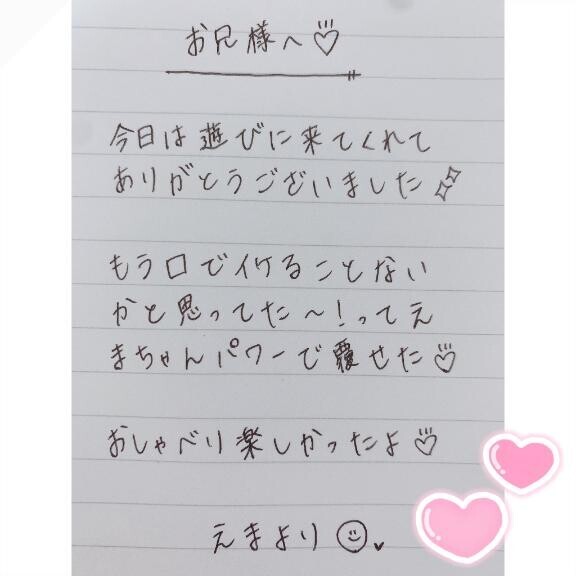 お兄様へ♡
今日は遊びに来てくれて
ありがとうございました
もう口でイケることない
かと思ってた〜!ってえ
まちゃんパワーで覆せた♡
おしゃべり楽しかったよ♡
えまより